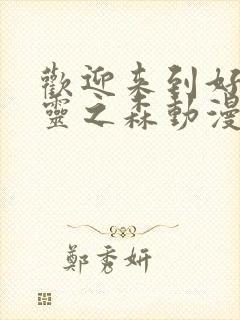 歡迎来到好
靈之森動漫
鄭秀妍